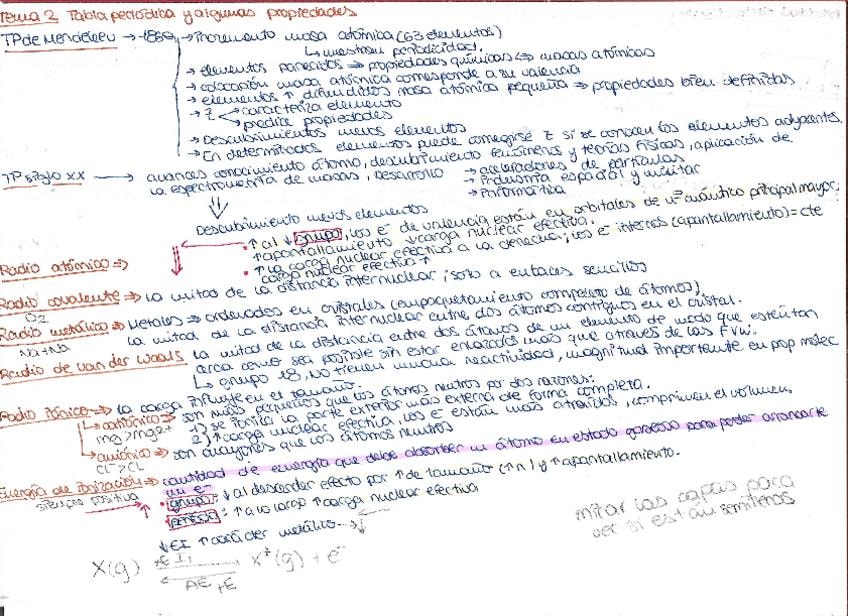 Tema 2. Tabla periódica y algunas propiedades
TP de Mendeleev → 1869 → incremento masa atómica (63 elementos)
↳ muestran periodicidad.
→ elementos parecidos ⇒ propiedades químicas ⇔ masas atómicas
→ colocación masa atómica corresponde a su valencia
→ elementos ↑ difundidos masa atómica pequeña ⇒ propiedades bien definidas
→ Z caracteriza elemento
predice propiedades
→ Descubrimientos nuevos elementos
→ En determinados elementos puede corregirse Z si se conocen los elementos adyacentes.
TP siglo XX → avances conocimiento átomo, descubrimiento fenómenos y teorías físicas, aplicación de
la espectrometría de masas, desarrollo → aceleradores de partículas
→ industria espacial y militar
→ informática
Descubrimiento nuevos elementos
Radio atómico ⇒ • ↑ al ↓ grupo, los e⁻ de valencia están en orbitales de nº cuántico principal mayor.
↑ apantallamiento ↓ carga nuclear efectiva.
• ↑ la carga nuclear efectiva a la derecha; los e⁻ internos (apantallamiento) = cte
carga nuclear efectiva ↑
Radio covalente → la mitad de la distancia internuclear; solo a enlaces sencillos
O2
Radio metálico → Metales ⇒ ordenados en cristales (empaquetamiento compacto de átomos)
la mitad de la distancia internuclear entre dos átomos contiguos en el cristal.
Na+Na
Radio de van der Waals la mitad de la distancia entre dos átomos de un elemento de modo que estén tan
cerca como sea posible sin estar enlazados más que através de las FVW.
↳ grupo 18, no tienen mucha reactividad, magnitud importante en prop molec
Radio iónico → la carga influye en el tamaño.
→ catiónico → son más pequeños que los átomos neutros por dos razones:
mg > mg2+ 1) se ioniza la parte exterior más externa de forma completa.
2) ↑ carga nuclear efectiva, los e⁻ están más atraídos, comprimen el volumen.
→ aniónico → son mayores que los átomos neutros
Cl⁻ > Cl
Energía de ionización → cantidad de energía que debe absorber un átomo en estado gaseoso para poder arrancarle
un e⁻
siempre positiva
• grupo: ↓ al descender efecto por ↑ de tamaño (↑n) y ↑ apantallamiento.
• periodo: ↑ a lo largo ↑ carga nuclear efectiva
↓ EI ↑ carácter metálico
mirar las capas para
ver si están semillenas
X(g) X⁺(g) + e⁻
AE +E